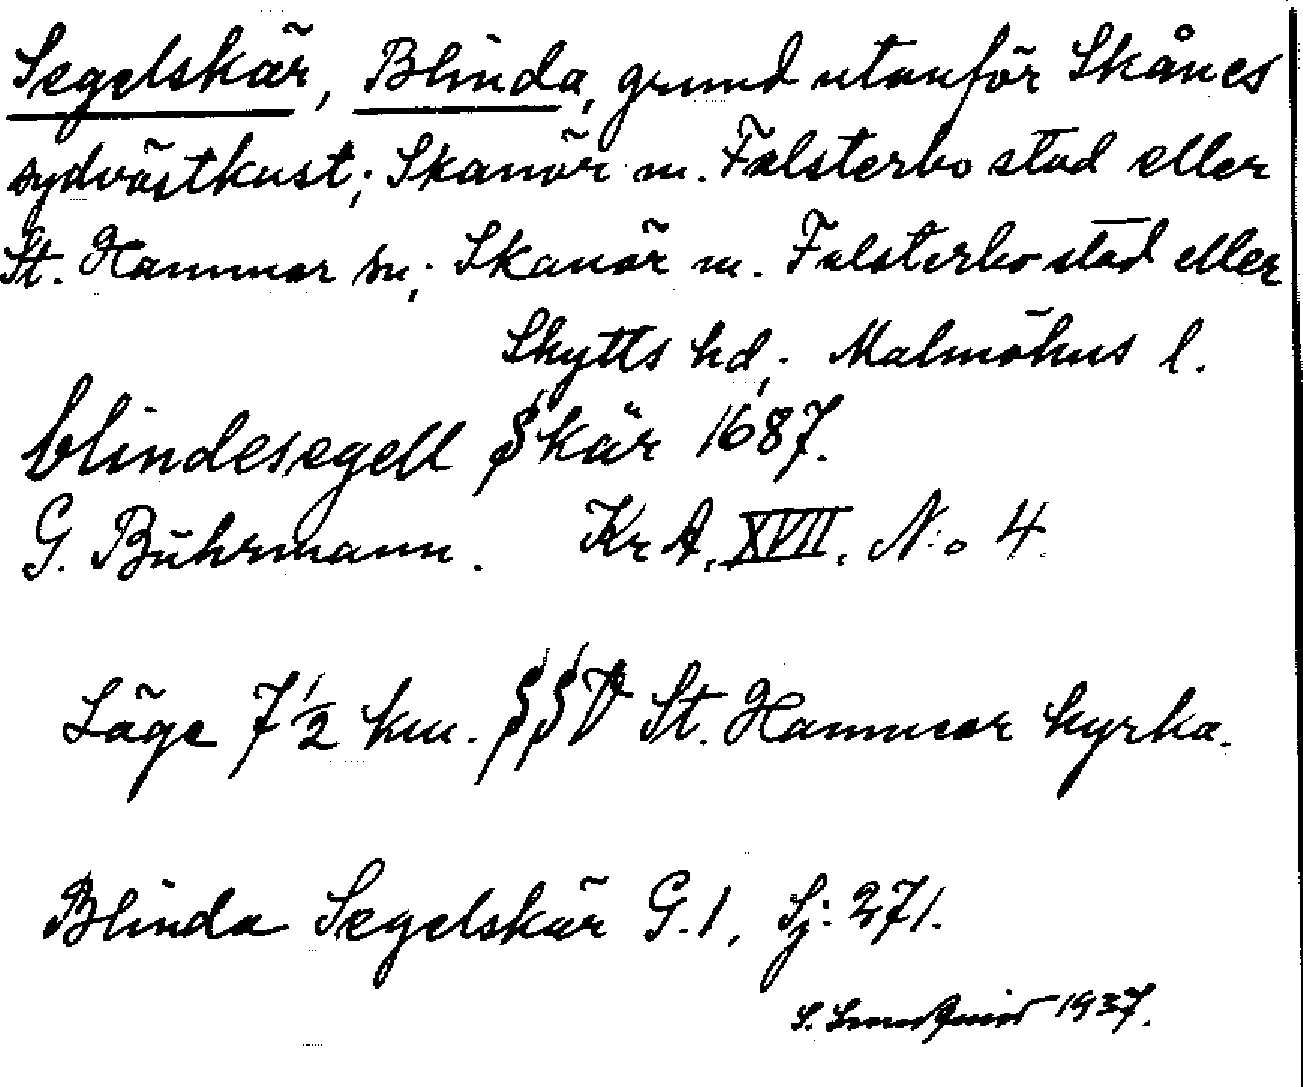 Segelskär, Blinda, grund utanför Skånes
sydvästkust; Skanör m. Falsterbo stad eller
St. Hammar sn; Skanör m. Falsterbo stad eller
Skytts hd; Malmöhus l.
blindesegell Skär 1687.
G. Bührmann. Kr A. XVII. N:o 4.
Läge 7 1/2 km. SSV St. Hammar kyrka.
Blinda Segelskär G. 1, Sj: 271.
S. 1937.